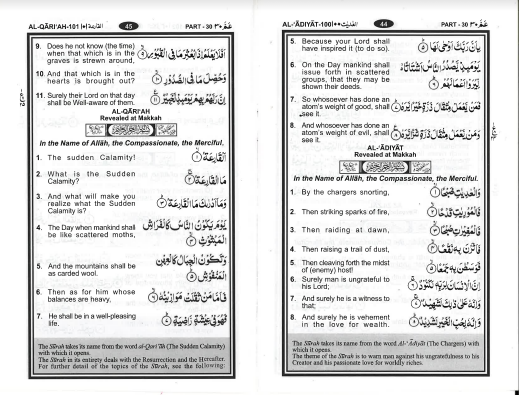 AL-'ĀDIYĀT-100 44 PART - 30
5. Because your Lord shall بِأَنَّ رَبَّكَ أَوْحَىٰ لَهَا ۝٥
have inspired it (to do so).
6. On the Day mankind shall يَوْمَئِذٍ يَصْدُرُ النَّاسُ أَشْتَاتًا
issue forth in scattered
groups, that they may be لِيُرَوْا أَعْمَالَهُمْ ۝٦
shown their deeds.
7. So whosoever has done an فَمَن يَعْمَلْ مِثْقَالَ ذَرَّةٍ خَيْرًا يَرَهُ ۝٧
atom's weight of good, shall
see it.
8. And whosoever has done an وَمَن يَعْمَلْ مِثْقَالَ ذَرَّةٍ شَرًّا يَرَهُ ۝٨
atom's weight of evil, shall
see it.
AL-'ĀDIYĀT
Revealed at Makkah
In the Name of Allāh, the Compassionate, the Merciful.
1. By the chargers snorting, وَالْعَادِيَاتِ ضَبْحًا ۝١
2. Then striking sparks of fire, فَالْمُورِيَاتِ قَدْحًا ۝٢
3. Then raiding at dawn, فَالْمُغِيرَاتِ صُبْحًا ۝٣
4. Then raising a trail of dust, فَأَثَرْنَ بِهِ نَقْعًا ۝٤
5. Then cleaving forth the midst فَوَسَطْنَ بِهِ جَمْعًا ۝٥
of (enemy) host!
6. Surely man is ungrateful to إِنَّ الْإِنسَانَ لِرَبِّهِ لَكَنُودٌ ۝٦
his Lord;
7. And surely he is a witness to وَإِنَّهُ عَلَىٰ ذَٰلِكَ لَشَهِيدٌ ۝٧
that;
8. And surely he is vehement وَإِنَّهُ لِحُبِّ الْخَيْرِ لَشَدِيدٌ ۝٨
in the love for wealth.
The Sūrah takes its name from the word Al-'Ādiyāt (The Chargers) with
which it opens.
The theme of the Sūrah is to warn man against his ungratefulness to his
Creator and his passionate love for worldly riches.
AL-QĀRI'AH-101 القارعة 45 PART - 30
9. Does he not know (the time) أَفَلَا يَعْلَمُ إِذَا بُعْثِرَ مَا فِي الْقُبُورِ ۝٩
when that which is in the
graves is strewn around,
10. And that which is in the وَحُصِّلَ مَا فِي الصُّدُورِ ۝١٠
hearts is brought out?
11. Surely their Lord on that day إِنَّ رَبَّهُم بِهِمْ يَوْمَئِذٍ لَّخَبِيرٌ ۝١١
shall be Well-aware of them.
AL-QĀRI'AH
Revealed at Makkah
In the Name of Allāh, the Compassionate, the Merciful.
1. The sudden Calamity! الْقَارِعَةُ ۝١
2. What is the Sudden مَا الْقَارِعَةُ ۝٢
Calamity?
3. And what will make you وَمَا أَدْرَاكَ مَا الْقَارِعَةُ ۝٣
realize what the Sudden
Calamity is?
4. The Day when mankind shall يَوْمَ يَكُونُ النَّاسُ كَالْفَرَاشِ
be like scattered moths, الْمَبْثُوثِ ۝٤
5. And the mountains shall be وَتَكُونُ الْجِبَالُ كَالْعِهْنِ
as carded wool. الْمَنفُوشِ ۝٥
6. Then as for him whose فَأَمَّا مَن ثَقُلَتْ مَوَازِينُهُ ۝٦
balances are heavy,
7. He shall be in a well-pleasing فَهُوَ فِي عِيشَةٍ رَّاضِيَةٍ ۝٧
life.
The Sūrah takes its name from the word al-Qari'āh (The Sudden Calamity)
with which it opens.
The Sūrah in its entirety deals with the Resurrection and the Hereafter.
For further detail of the topics of the Sūrah, see the following: